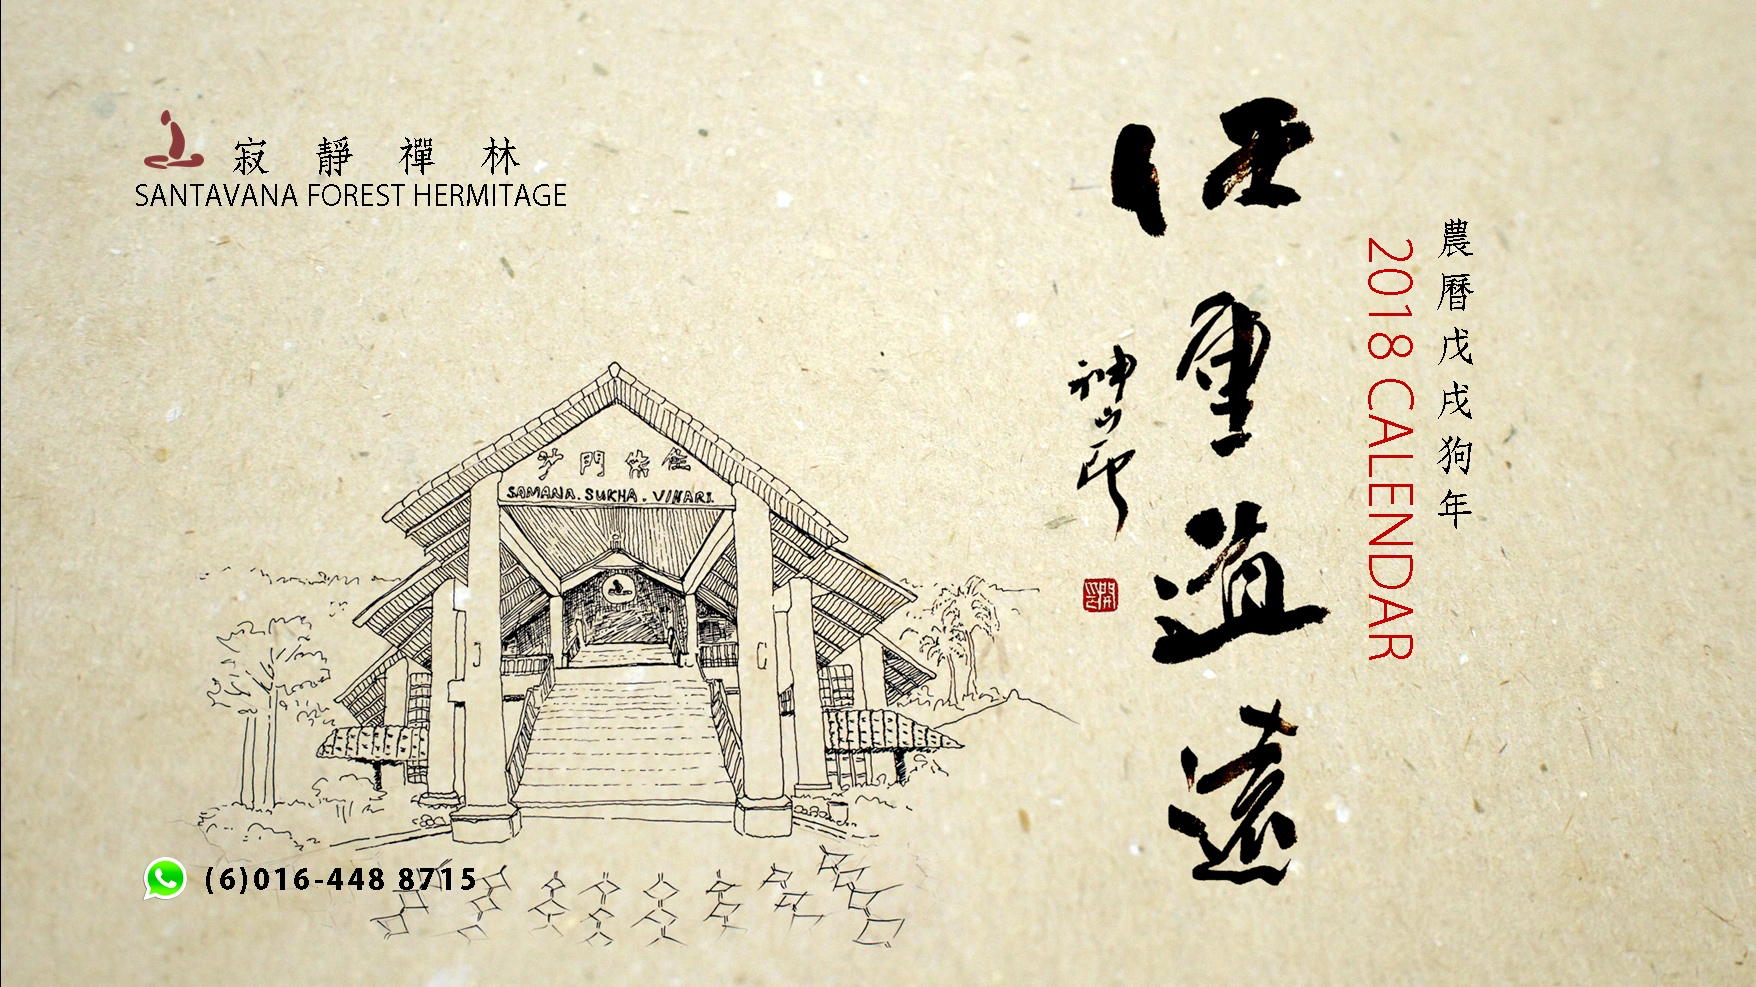 寂靜禪林
SANTAVANA FOREST HERMITAGE
農曆戊戌狗年
2018 CALENDAR
任重道遠
沙門
SAMANA. SUKHA. VIHARI.
(6)016-448 8715